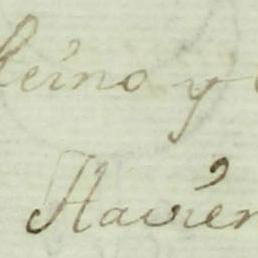 Reino y
Havien